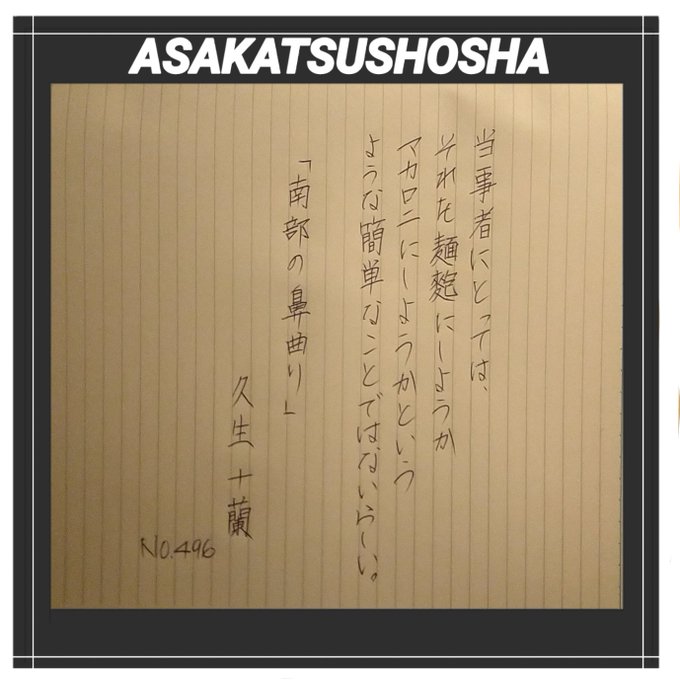 ASAKATSUSHOSHA
当事者にとっては、
それを麺麭にしようか
マカロニにしようかという
ような簡単なことではないらしい。
「南部の鼻曲り」
久生十蘭
NO.496